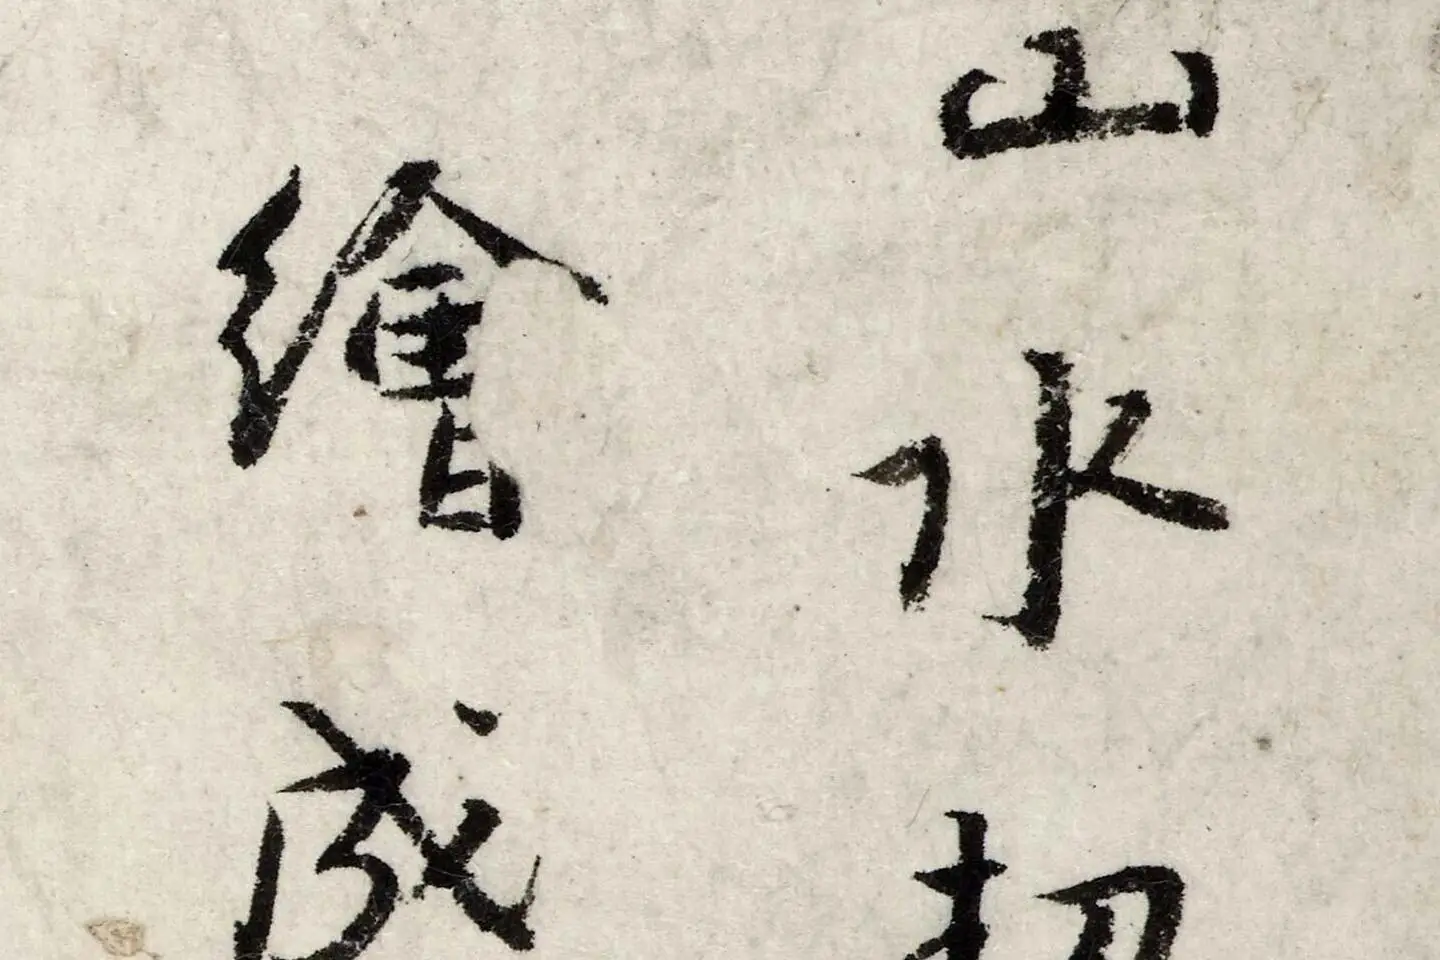 山水
繪成